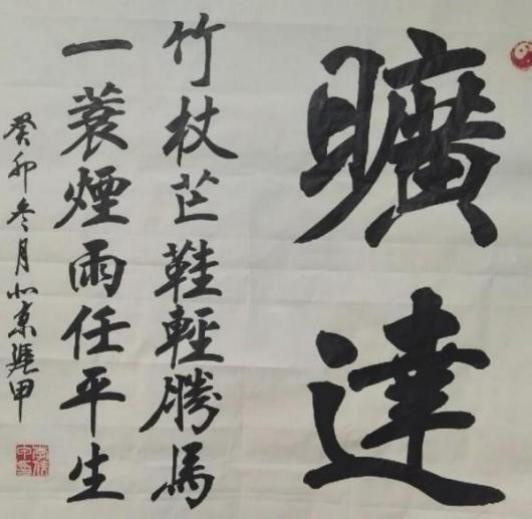 曠達
竹杖芒鞋輕勝馬
一蓑煙雨任平生
癸卯冬月北京